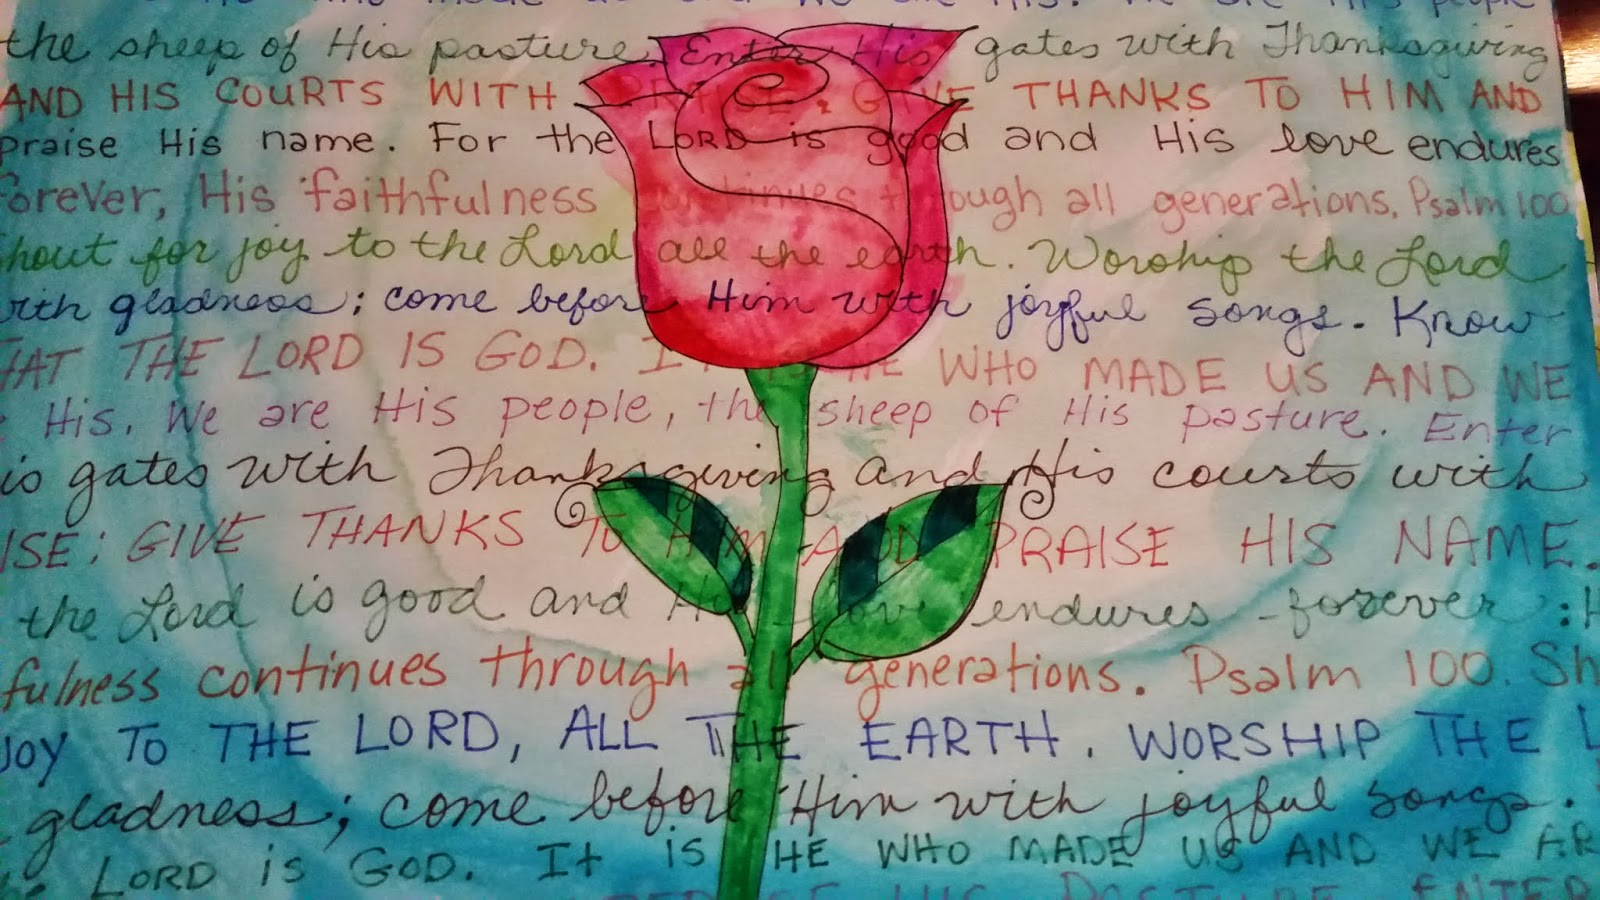 who made us and we are His. We are His people
the sheep of His pasture. Enter His gates with Thanksgiving
AND HIS COURTS WITH PRAISE. GIVE THANKS TO HIM AND
praise His name. For the LORD is good and His love endures
forever, His faithfulness continues through all generations. Psalm 100.
hout for joy to the Lord all the earth. Worship the Lord
ith gladness; come before Him with joyful songs. Know
HAT THE LORD IS GOD. IT HE WHO MADE US AND WE
His. We are His people, the sheep of His pasture. Enter
is gates with Thanksgiving and His courts with
ISE; GIVE THANKS TO HIM AND PRAISE HIS NAME.
the Lord is good and His love endures forever: H
fulness continues through all generations. Psalm 100. Sh
JOY TO THE LORD, ALL THE EARTH. WORSHIP THE L
gladness; come before Him with joyful songs.
he LORD is GOD. It is HE WHO MADE US AND WE AR
HIS PASTURE ENTER